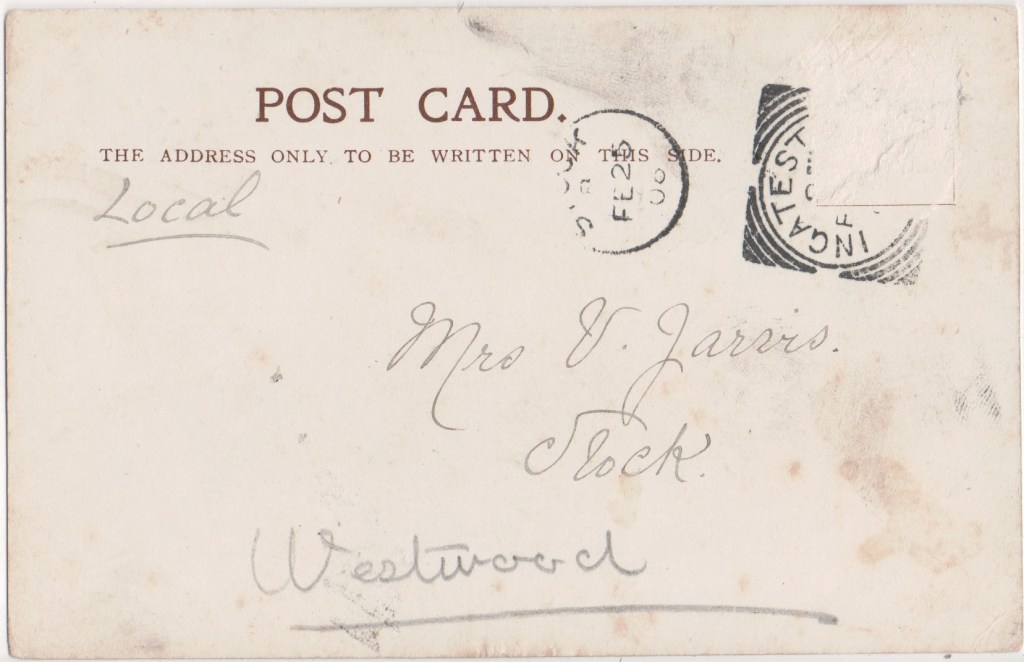 POST CARD.
THE ADDRESS ONLY TO BE WRITTEN ON THIS SIDE.
Local
FE 25
06
INGATEST
Mrs V. Jarvis.
Stock.
Westwood